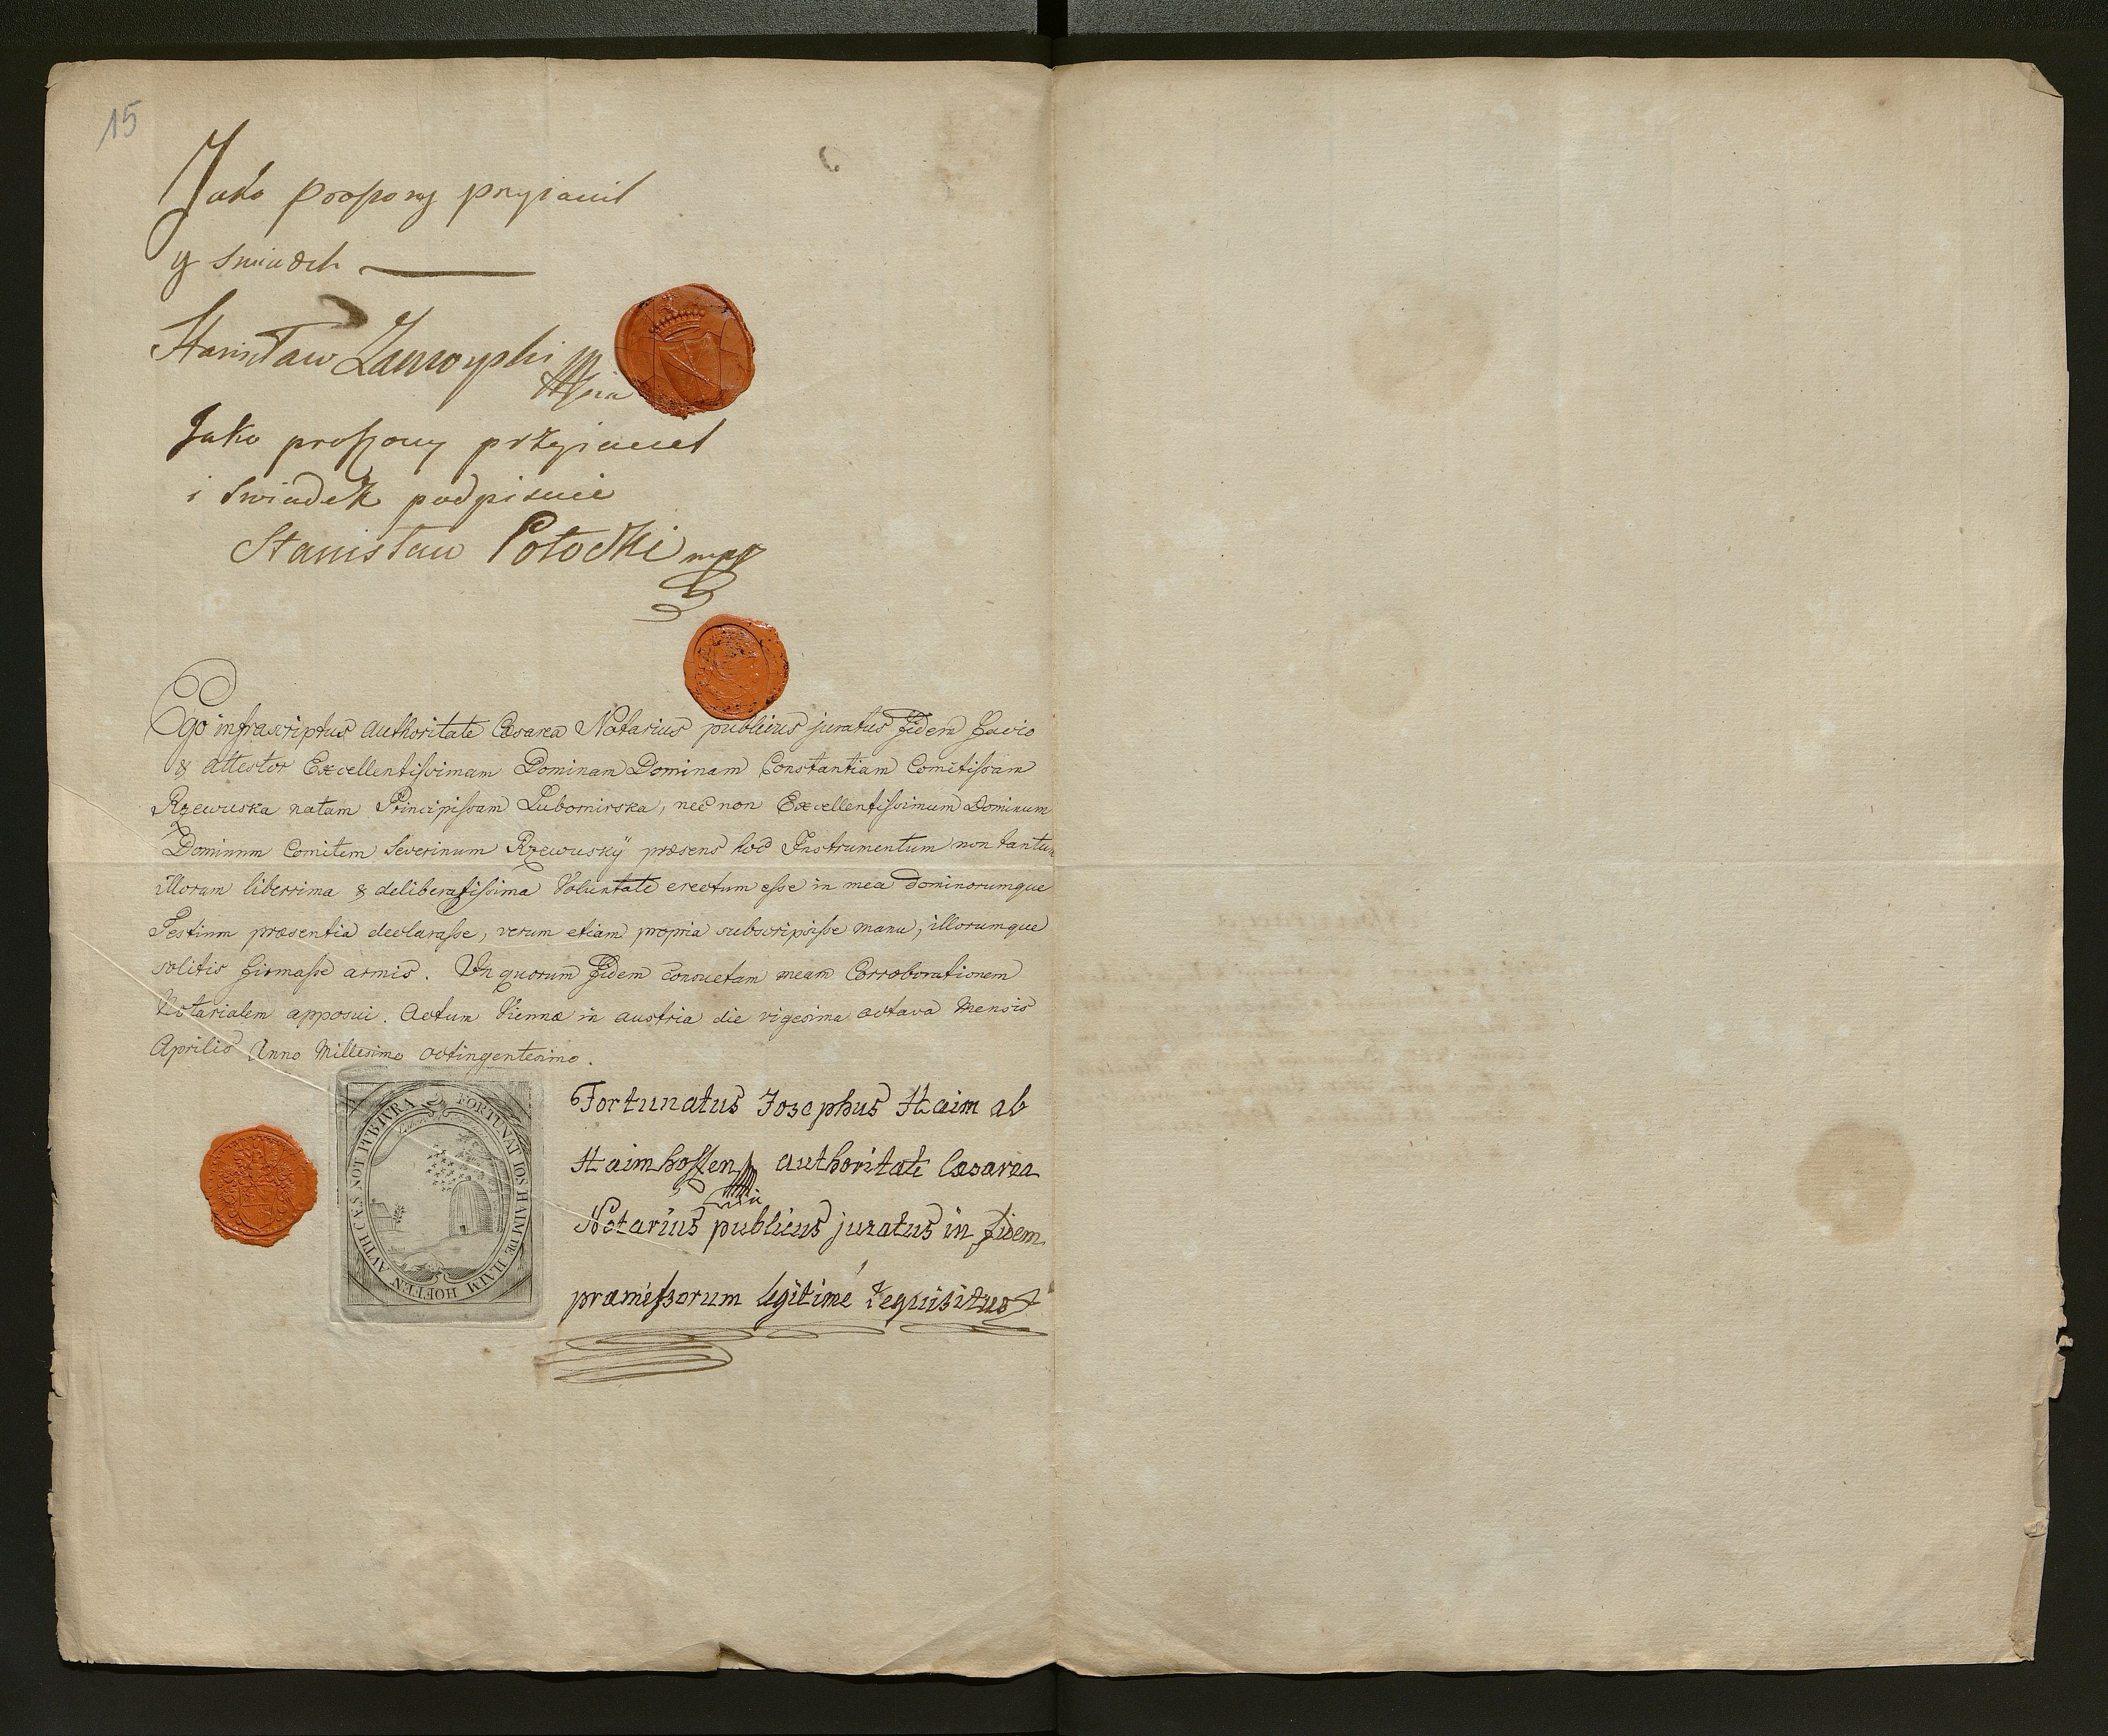 15
Jako proszony przyiaciel
y swiadek
Stanisław Zamoyski mpria
Jako proszony przyiaciel
i swiadek podpisuie
Stanisław Potocki mpp
Ego infrascriptus Authoritate Cæsarea Notarius publicus juratus Fidem facio
& attestor Excellentissimam Dominam Dominam Constantiam Comitissam
Rzewuska natam Principissam Lubomirska, nec non Excellentissimum Dominum
Dominum Comitem Severinum Rzewuskÿ præsens hoc Instrumentum non tantum
illorum liberrima & deliberatissima Voluntate erectum esse in mea Dominorumque
Testium præsentia declarasse, verum etiam propria subscripsisse manu, illorumque
solitis firmasse armis. In quorum Fidem consuetam meam Corroborationem
Notarialem apposui. Actum Viennæ in Austria die vigesima octava Mensis
Aprilis Anno Millesimo octingentesimo.
FORTUNAT IOS HAIM DE HAIM HOFFEN AVTH CÆS NOT PVB IVRA
Fortunatus Josephus Haim ab
Haimhoffen mpria authoritate Cæsarea
Notarius publicus juratus in fidem
præmissorum legitimé requisitus